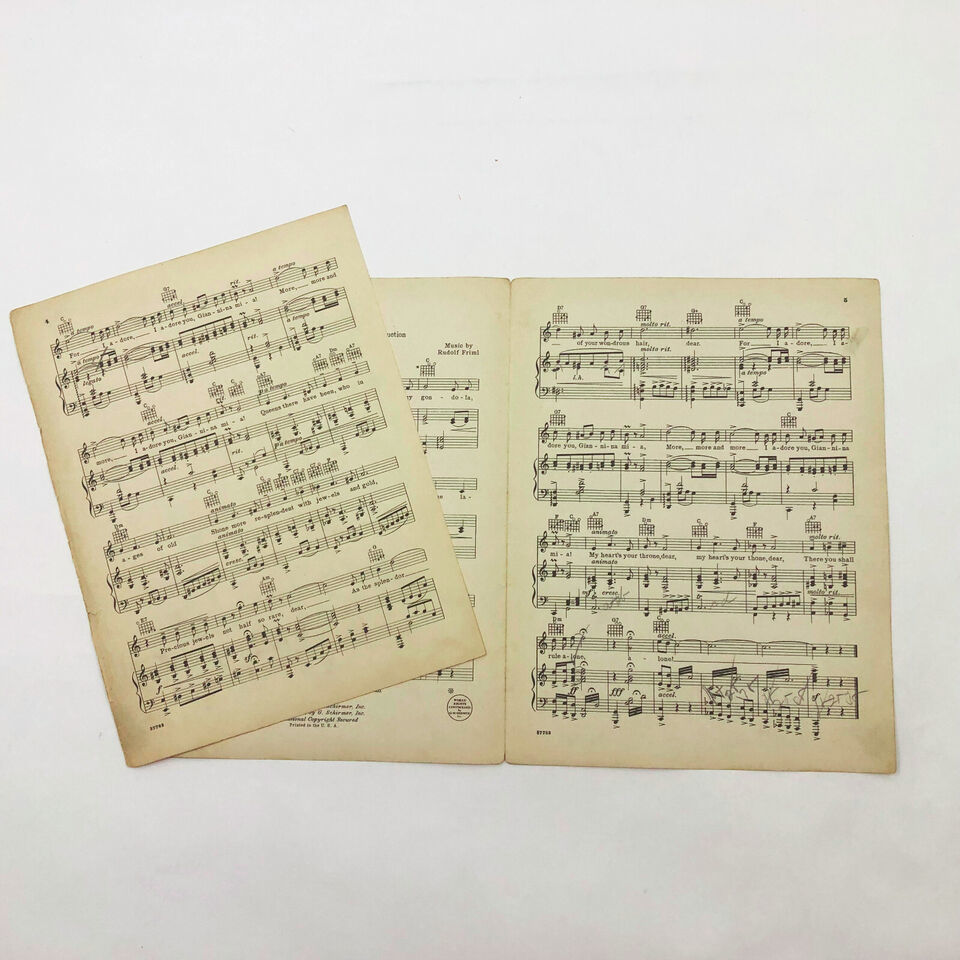 4
a tempo
accel.
rit.
a tempo
For I a-dore, I a-dore you, Gian-ni-na mi-a! More, more and
a tempo
legato
accel.
rit.
a tempo
accel.
a tempo
more, I a-dore you, Gian-ni-na mi-a! Queens there have been, who in
accel.
rit.
a tempo
animato
a-ges of old Shone more re-splen-dent with jew-els and gold,
cresc.
animato
Am
Pre-cious jew-els not half so rare, dear, As the splen-dor
f
37723
uction
Music by
Rudolf Friml
my gon-do-la,
he la-
chirmer, Inc.
by G. Schirmer, Inc.
national Copyright Secured
Printed in the U. S. A.
WORLD
RIGHTS
CONTROLLED
5
D7 G7 G+ C
molto rit.
a tempo
of your won-drous hair, dear. For I a-dore, I a-
molto rit.
l.h.
a tempo
G7 C
dore you, Gian-ni-na mi-a, More, more and more I a-dore you, Gian-ni-na
F C A7 Dm C F A7
animato
molto rit.
mi-a! My heart's your throne, dear, my heart's your thone, dear, There you shall
animato
mf cresc.
molto rit.
Dm G7 C
accel.
rule a-lone, a-lone!
fff
accel.
37723